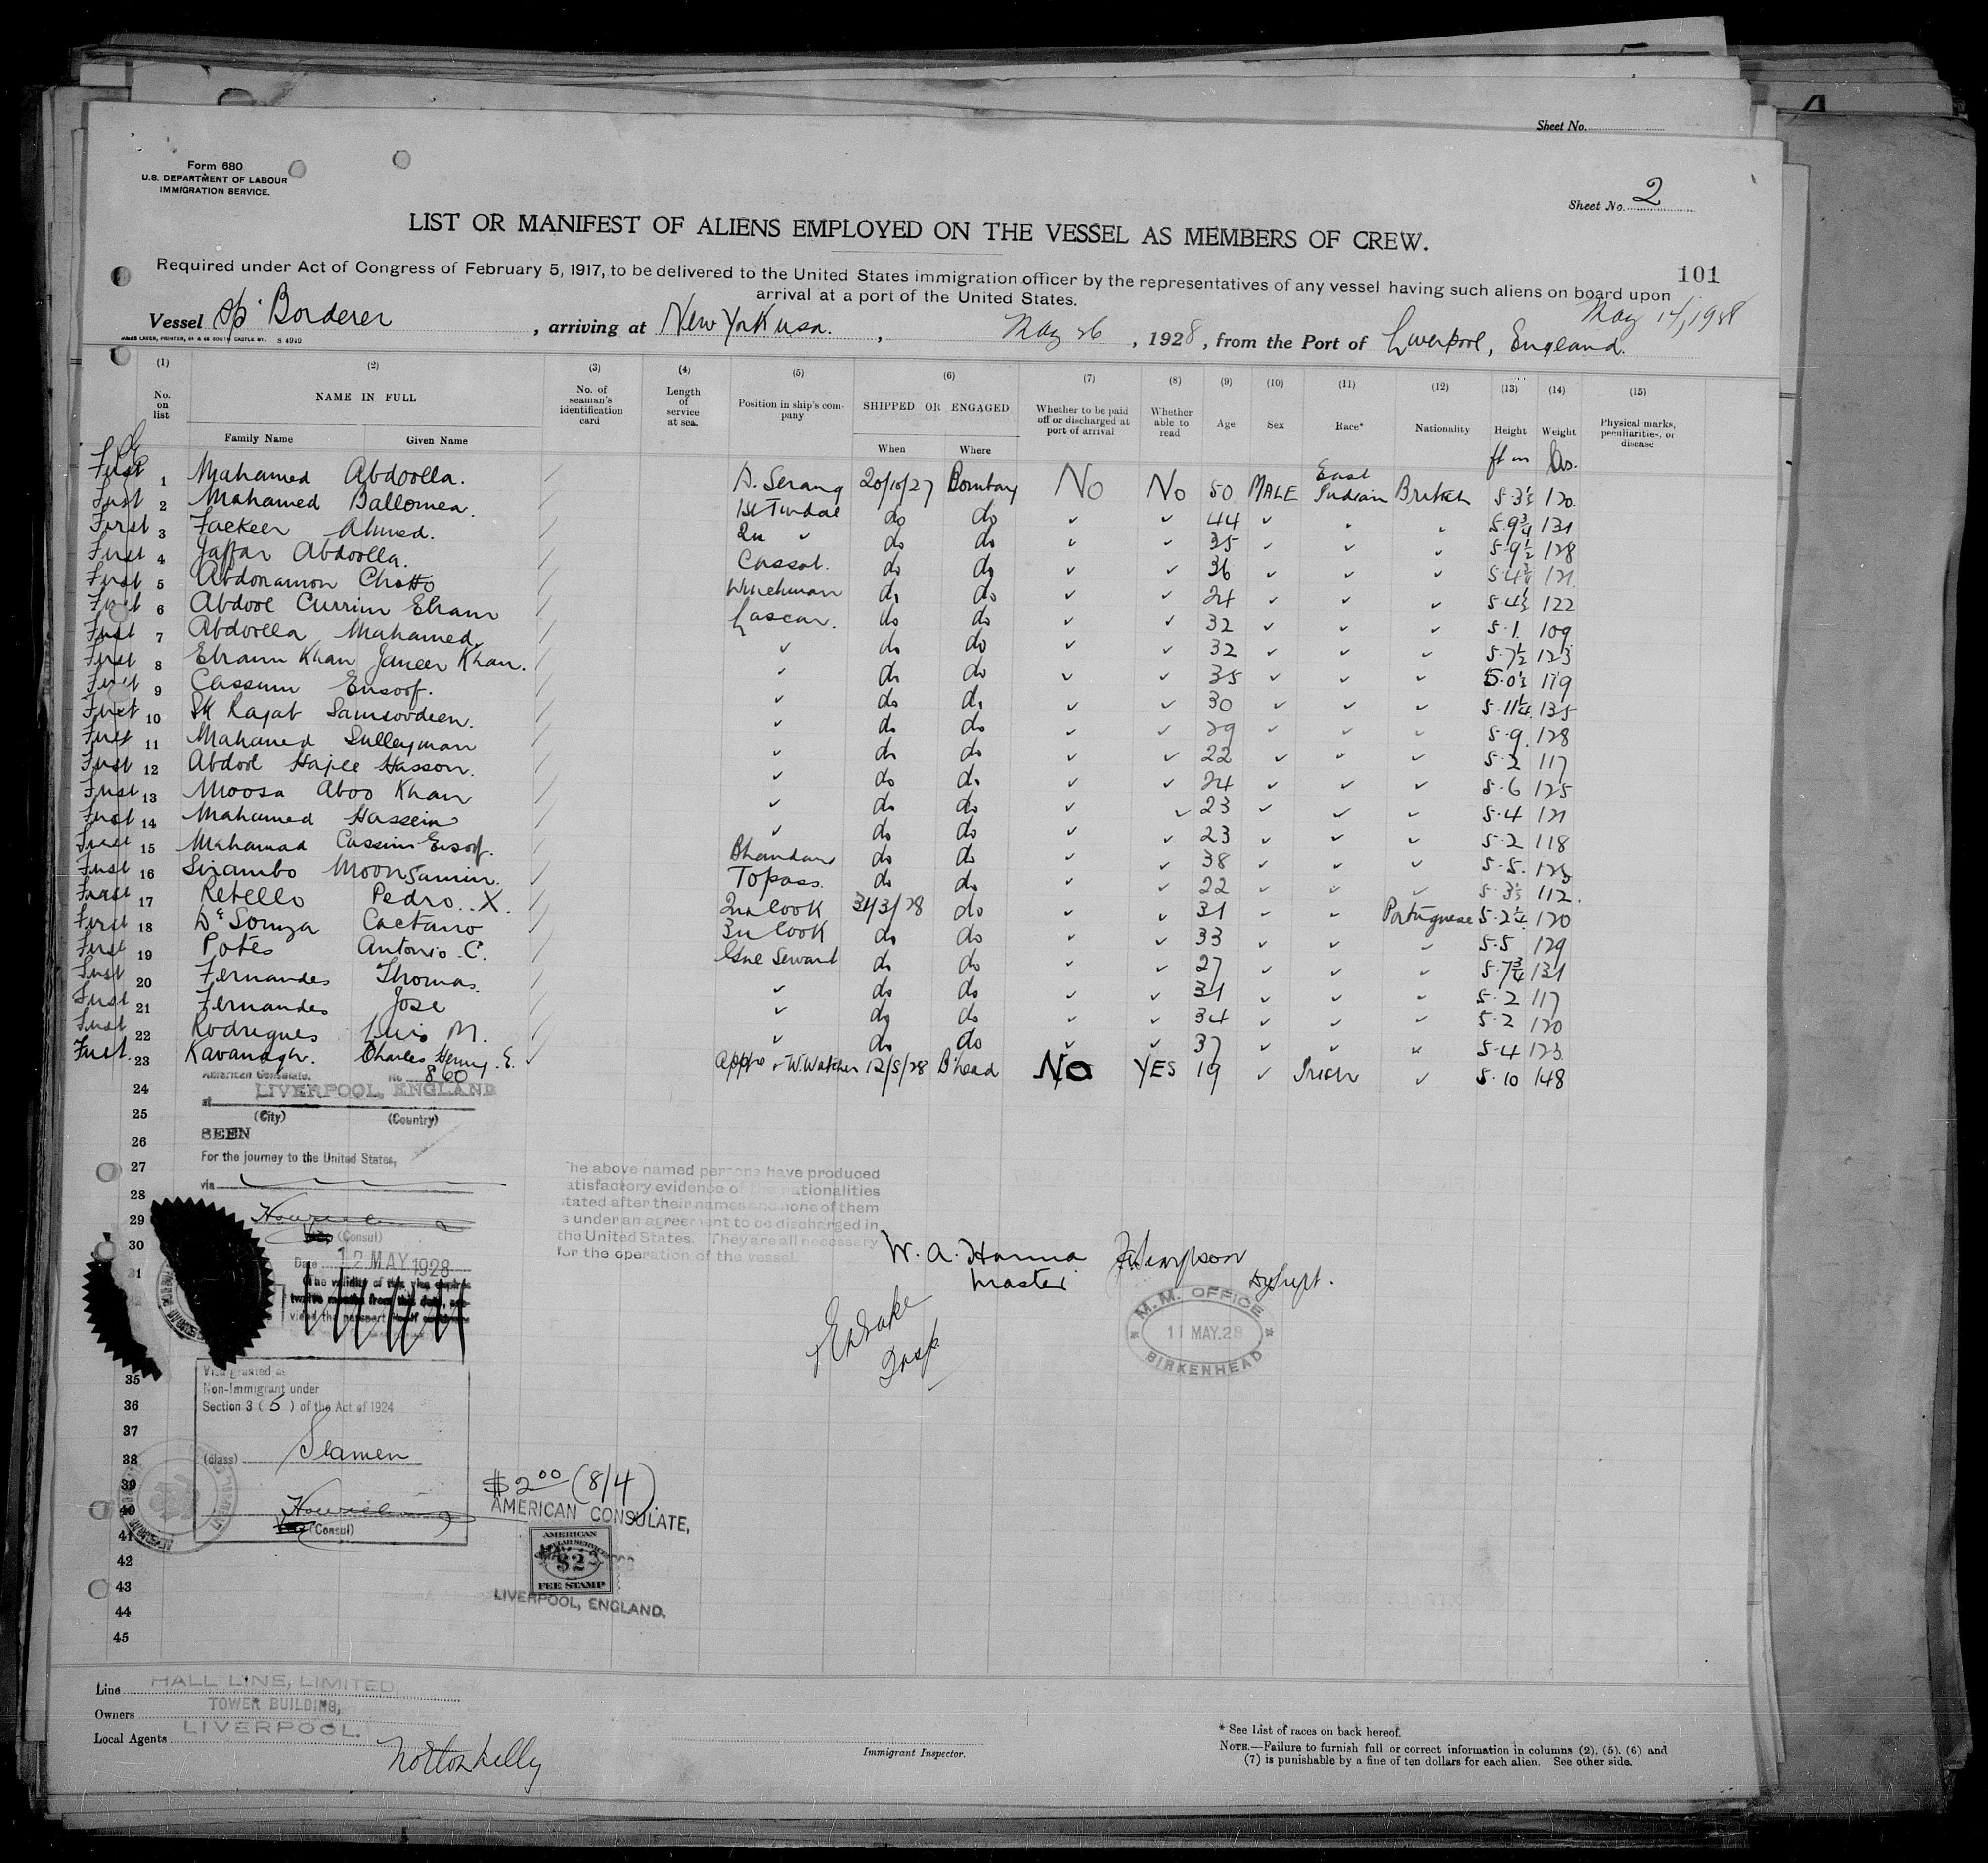 Sheet No.
Form 680
U.S. DEPARTMENT OF LABOUR
IMMIGRATION SERVICE.
Sheet No. 2
LIST OR MANIFEST OF ALIENS EMPLOYED ON THE VESSEL AS MEMBERS OF CREW.
101
Required under Act of Congress of February 5, 1917, to be delivered to the United States immigration officer by the representatives of any vessel having such aliens on board upon
arrival at a port of the United States.
May 14, 1928
Vessel Borderer, arriving at New York usa., May 26, 1928, from the Port of Liverpool, England.
(1) (2) (3) (4) (5) (6) (7) (8) (9) (10) (11) (12) (13) (14) (15)
No. on list NAME IN FULL No. of seaman's identification card Length of service at sea. Position in ship's company SHIPPED OR ENGAGED Whether to be paid off or discharged at port of arrival Whether able to read Age Sex Race* Nationality Height Weight Physical marks, peculiarities, or disease
Family Name Given Name When Where
ft in lbs.
First 1 Mahamed Abdoolla. D. Serang 20/10/27 Bombay No No 50 MALE East Indian British 5.3½ 120
First 2 Mahamed Ballomea. 1st Tindal do do 44 5.9¾ 131
First 3 Fackeer Ahmed. 2n do do 35 5.9½ 128
First 4 Jaffar Abdoolla. Cassab. do do 36 121
First 5 Abdoramon Chotto Winchman do do 24 5.4½ 122
First 6 Abdool Currim Ebram Lascar. do do 32 5.1. 109
First 7 Abdoolla Mahamed. do do 32 5.7½ 123
First 8 Ebraim Khan Janeer Khan. do do 35 5.0½ 119
First 9 Cassum Eusoof. do do 30 5.11¼ 135
First 10 Sk Rajab Samsoodeen. do do 29 5.9. 128
First 11 Mahamed Sulleyman do do 22 5.2 117
First 12 Abdool Hajee Hasson. do do 24 5.6 125
First 13 Moosa Aboo Khan do do 23 5.4 121
First 14 Mahamed Hassein do do 23 5.2 118
First 15 Mahamad Cassim Eusoof. Bhandari do do 38 5.5. 123
First 16 Sirambo Moonsamin. Topass. do do 22 5.3½ 112.
First 17 Rebello Pedro. X. 2nd Cook 31/3/28 do 31 Portuguese 5.2¼ 120
First 18 De Souza Caetano 3n Cook do do 33 5.5 129
First 19 Potes Antonio. C. Genl Steward do do 27 5.7¾ 131
First 20 Fernandes Thomas. do do 31 5.2 117
First 21 Fernandes Jose do do 34 5.2 120
First 22 Rodrigues Luis M. do do 37 5.4 123
First. 23 Kavanagh. Charles Henry. E. Appre W. Watcher 12/5/28 B'head No YES 19 Irish 5.10 148
American Consulate, No 860
24
at LIVERPOOL, ENGLAND
25
(City) (Country)
26
SEEN
27
For the journey to the United States,
28
via
29
30
(Consul)
31
Date 12 MAY 1928
The validity of this visa expires
twelve months from this date, pro-
vided the passport itself continues
The above named persons have produced
satisfactory evidence of the nationalities
stated after their names and none of them
is under an agreement to be discharged in
the United States. They are all necessary
for the operation of the vessel.
W. A. Hanna
Master
Dy Supt.
Insp.
M. M. OFFICE
11 MAY. 28
BIRKENHEAD
35
Visa granted as
Non-Immigrant under
36
Section 3 (5) of the Act of 1924
37
38
(class) Seamen
39
40
41
(Consul)
42
43
44
45
$2.00 (8/4)
AMERICAN CONSULATE,
AMERICAN
CONSULAR SERVICE
$2
FEE STAMP
LIVERPOOL, ENGLAND.
Line HALL LINE, LIMITED,
Owners TOWER BUILDING,
Local Agents LIVERPOOL.
Norton Lilly
Immigrant Inspector.
* See List of races on back hereof.
NOTE.—Failure to furnish full or correct information in columns (2), (5), (6) and
(7) is punishable by a fine of ten dollars for each alien. See other side.